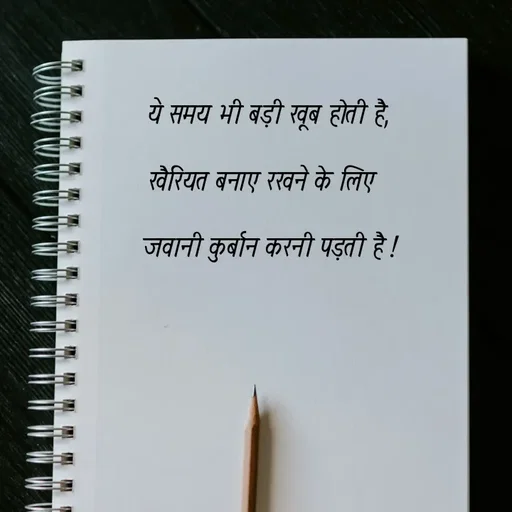 ये समय भी बड़ी खूब होती है,
खैरियत बनाए रखने के लिए
जवानी कुर्बान करनी पड़ती है !